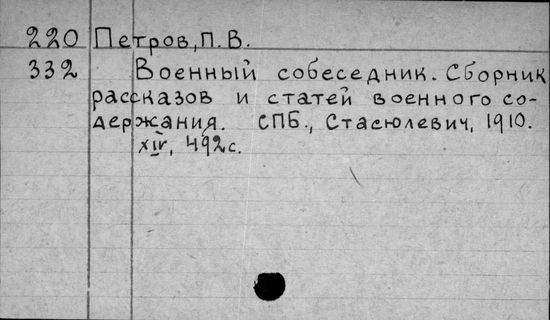 220 Петров, П. В.
332 Военный собеседник. Сборник
рассказов и статей военного со-
держания. СПБ., Стасюлевич, 1910.
XIV, 492с.